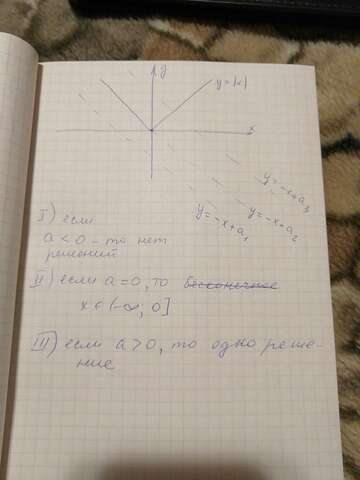 y
y=|x|
x
y=-x+a₃
y=-x+a₂
y=-x+a₁
I) если
a < 0 - то нет
решений
II) если a = 0, то бесконечное
x ∈ (-∞; 0]
III) если a > 0, то одно реше-
ние